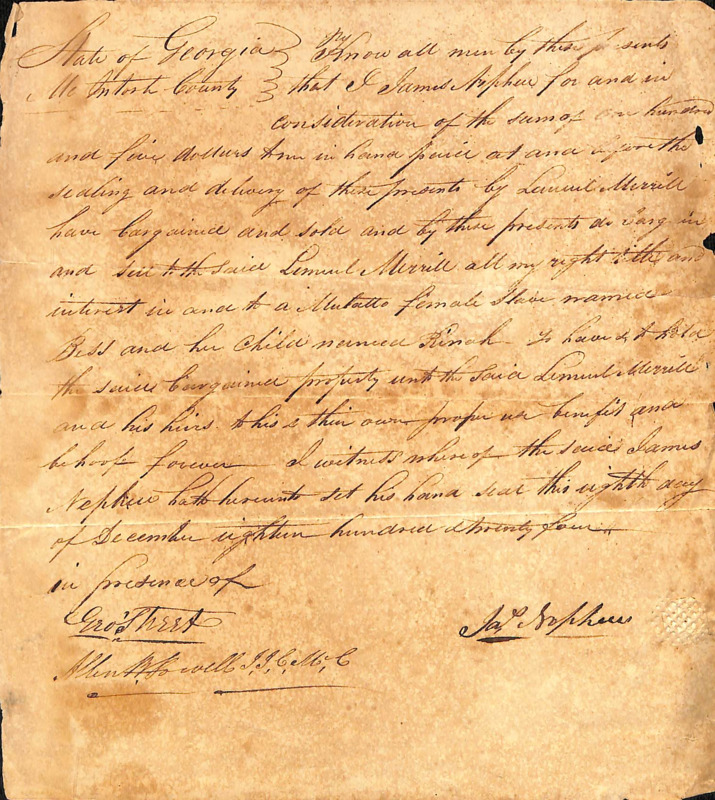 State of Georgia } Know all men by these presents
McIntosh County } that I James Nephew for and in
consideration of the sum of one hundred
and five dollars to me in hand paid at and before the
sealing and delivery of these presents by Lemuel Merrill
have bargained and sold and by these presents do bargain
and sell to the said Lemuel Merrill all my right title and
interest in and to a Mulatto female Slave named
Bess and her Child named Rinah to have & to hold
the said bargained property unto the said Lemuel Merrill
and his heirs to his & their own proper use benefit and
behoof forever I witness whereof the said James
Nephew hath hereunto set his hand seal this eighth day
of December eighteen hundred & twenty four
in presence of
Geo. Street Jas. Nephew
Allen B. Powell J.I.C.McC